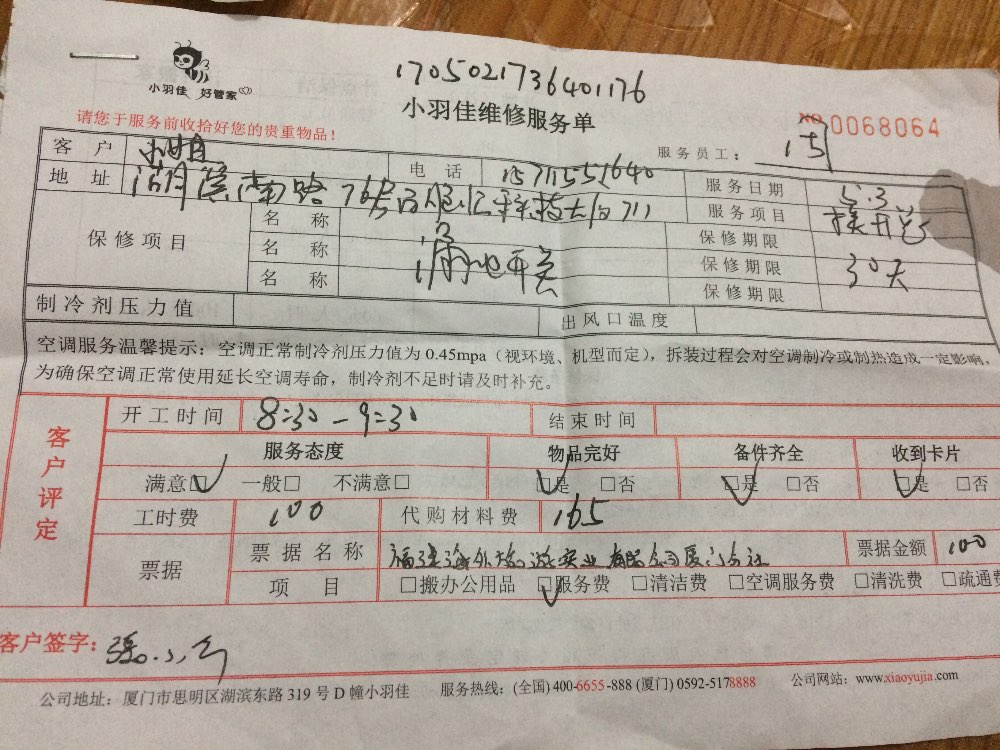 1705021736401176
小羽佳 好管家
小羽佳维修服务单
请您于服务前收拾好您的贵重物品！
NO 0068064
服务员工：
客户 电话 15711551640 服务日期 5.3
地址 服务项目
保修项目 名称 漏电开关 保修期限
名称 保修期限 30天
名称 保修期限
制冷剂压力值 出风口温度
空调服务温馨提示：空调正常制冷剂压力值为 0.45mpa（视环境、机型而定），拆装过程会对空调制冷或制热造成一定影响，
为确保空调正常使用延长空调寿命，制冷剂不足时请及时补充。
客户评定
开工时间 8:30-9:30 结束时间
服务态度 物品完好 备件齐全 收到卡片
满意□ 一般□ 不满意□ □是 □否 □是 □否 □是 □否
工时费 100 代购材料费 165
票据 票据名称 福建海外旅游实业有限公司厦门分社 票据金额 100
项目 □搬办公用品 □服务费 □清洁费 □空调服务费 □清洗费 □疏通费
客户签字：
公司地址：厦门市思明区湖滨东路 319 号 D 幢小羽佳 服务热线：(全国) 400-6655-888 (厦门) 0592-5178888 公司网站：www.xiaoyujia.com